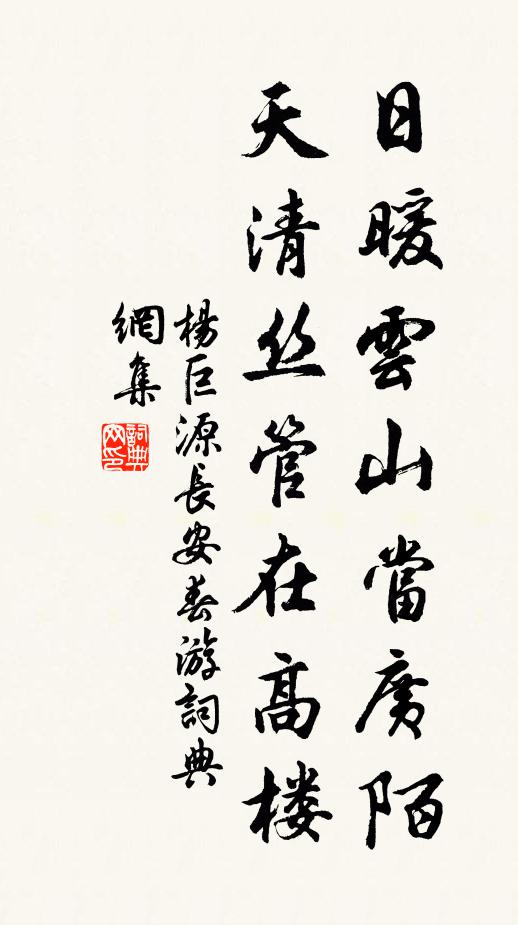 日暖雲山當廣陌
天清丝管在高楼
楊巨源長安春游詞典
網集
詞典
网印